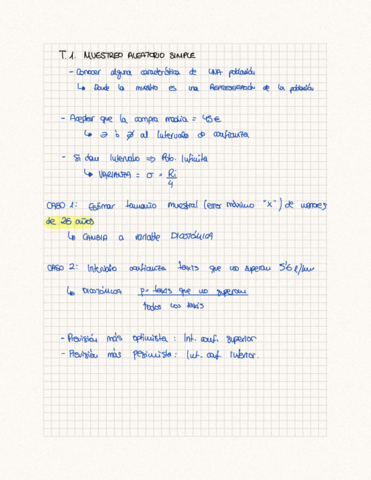 T.1. MUESTREO ALEATORIO SIMPLE
- Conocer alguna característica de UNA población
↳ Donde la muestra es una REPRESENTACIÓN de la población
- Aceptar que la compra media = 45€
↳ ∋ ó ∌ al Intervalo de confianza
- Si dan Intervalo ⇒ Pob. Infinita
↳ VARIANZA = σ = Ri / 4
CASO 1: Estimar tamaño muestral (error máximo "X") de menores
de 25 años
↳ CAMBIA a variable DICOTÓMICA
CASO 2: Intervalo confianza taxis que no superan 5'6 l/km
↳ DICOTÓMICA p = taxis que no superan
todos los taxis
- Previsión más optimista: Int. conf. superior
- Previsión más pesimista: Int. conf. inferior.